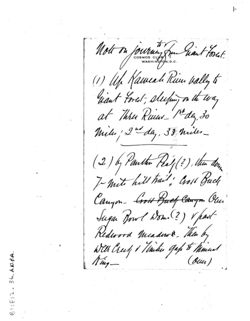 Note on Journey to & from Giant Forest.
COSMOS CLUB
WASHINGTON, D.C.
(1) Up Kaweah River valley to
Giant Forest; sleeping on the way
at Three Rivers. 1st day, 30
miles; 2nd day, 38 miles.
(2) by Panther Peak (?). then down
7-mile hill trail; cross Buck
Canyon. Cross Buck Canyon Over
Sugar Bowl Dome (?) & past
Redwood meadow. Then by
Cliff Creek & Timber gap to Mineral
King.
(over)